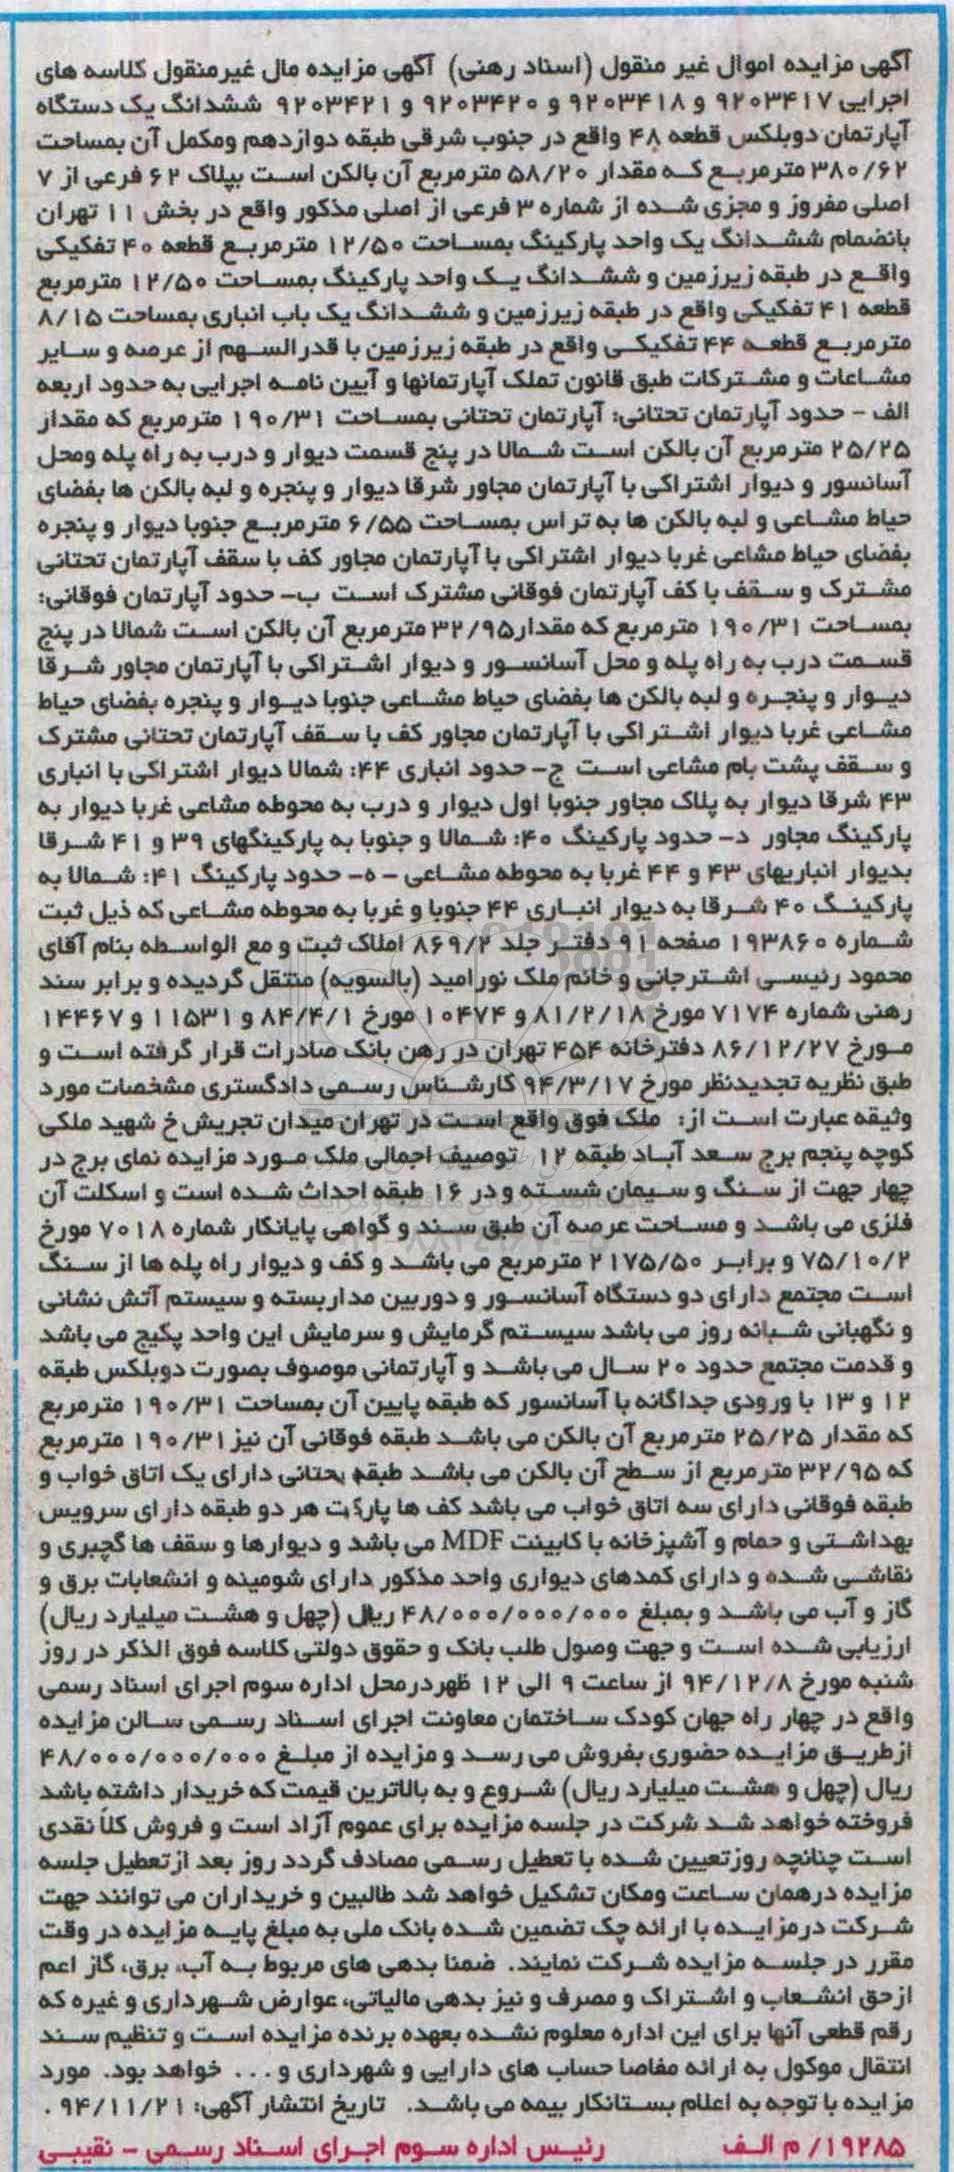 آگهی مزایده اموال غیر منقول (اسناد رهنی) آگهی مزایده مال غیرمنقول کلاسه های
اجرایی ۹۲۰۳۴۱۷ و ۹۲۰۳۴۱۸ و ۹۲۰۳۴۲۰ و ۹۲۰۳۴۲۱ ششدانگ یک دستگاه
آپارتمان دوبلکس قطعه ۴۸ واقع در جنوب شرقی طبقه دوازدهم ومکمل آن بمساحت
۳۸۰/۶۲ مترمربع که مقدار ۵۸/۲۰ مترمربع آن بالکن است بپلاک ۶۲ فرعی از ۷
اصلی مفروز و مجزی شده از شماره ۳ فرعی از اصلی مذکور واقع در بخش ۱۱ تهران
بانضمام ششدانگ یک واحد پارکینگ بمساحت ۱۲/۵۰ مترمربع قطعه ۴۰ تفکیکی
واقع در طبقه زیرزمین و ششدانگ یک واحد پارکینگ بمساحت ۱۲/۵۰ مترمربع
قطعه ۴۱ تفکیکی واقع در طبقه زیرزمین و ششدانگ یک باب انباری بمساحت ۸/۱۵
مترمربع قطعه ۴۴ تفکیکی واقع در طبقه زیرزمین با قدرالسهم از عرصه و سایر
مشاعات و مشترکات طبق قانون تملک آپارتمانها و آیین نامه اجرایی به حدود اربعه
الف - حدود آپارتمان تحتانی: آپارتمان تحتانی بمساحت ۱۹۰/۳۱ مترمربع که مقدار
۲۵/۲۵ مترمربع آن بالکن است شمالا در پنج قسمت دیوار و درب به راه پله ومحل
آسانسور و دیوار اشتراکی با آپارتمان مجاور شرقا دیوار و پنجره و لبه بالکن ها بفضای
حیاط مشاعی و لبه بالکن ها به تراس بمساحت ۶/۵۵ مترمربع جنوبا دیوار و پنجره
بفضای حیاط مشاعی غربا دیوار اشتراکی با آپارتمان مجاور کف با سقف آپارتمان تحتانی
مشترک و سقف با کف آپارتمان فوقانی مشترک است ب- حدود آپارتمان فوقانی:
بمساحت ۱۹۰/۳۱ مترمربع که مقدار۳۲/۹۵ مترمربع آن بالکن است شمالا در پنج
قسمت درب به راه پله و محل آسانسور و دیوار اشتراکی با آپارتمان مجاور شرقا
دیوار و پنجره و لبه بالکن ها بفضای حیاط مشاعی جنوبا دیوار و پنجره بفضای حیاط
مشاعی غربا دیوار اشتراکی با آپارتمان مجاور کف با سقف آپارتمان تحتانی مشترک
و سقف پشت بام مشاعی است ج- حدود انباری ۴۴: شمالا دیوار اشتراکی با انباری
۴۳ شرقا دیوار به پلاک مجاور جنوبا اول دیوار و درب به محوطه مشاعی غربا دیوار به
پارکینگ مجاور د- حدود پارکینگ ۴۰: شمالا و جنوبا به پارکینگهای ۳۹ و ۴۱ شرقا
بدیوار انباریهای ۴۳ و ۴۴ غربا به محوطه مشاعی - ه- حدود پارکینگ ۴۱: شمالا به
پارکینگ ۴۰ شرقا به دیوار انباری ۴۴ جنوبا و غربا به محوطه مشاعی که ذیل ثبت
شماره ۱۹۳۸۶۰ صفحه ۹۱ دفتر جلد ۸۶۹/۲ املاک ثبت و مع الواسطه بنام آقای
محمود رئیسی اشترجانی و خانم ملک نورامید (بالسویه) منتقل گردیده و برابر سند
رهنی شماره ۷۱۷۴ مورخ ۸۱/۲/۱۸ و ۱۰۴۷۴ مورخ ۸۴/۴/۱ و ۱۱۵۳۱ و ۱۴۴۶۷
مورخ ۸۶/۱۲/۲۷ دفترخانه ۴۵۴ تهران در رهن بانک صادرات قرار گرفته است و
طبق نظریه تجدیدنظر مورخ ۹۴/۳/۱۷ کارشناس رسمی دادگستری مشخصات مورد
وثیقه عبارت است از: ملک فوق واقع است در تهران میدان تجریش خ شهید ملکی
کوچه پنجم برج سعد آباد طبقه ۱۲ توصیف اجمالی ملک مورد مزایده نمای برج در
چهار جهت از سنگ و سیمان شسته و در ۱۶ طبقه احداث شده است و اسکلت آن
فلزی می باشد و مساحت عرصه آن طبق سند و گواهی پایانکار شماره ۷۰۱۸ مورخ
۷۵/۱۰/۲ و برابر ۲۱۷۵/۵۰ مترمربع می باشد و کف و دیوار راه پله ها از سنگ
است مجتمع دارای دو دستگاه آسانسور و دوربین مداربسته و سیستم آتش نشانی
و نگهبانی شبانه روز می باشد سیستم گرمایش و سرمایش این واحد پکیج می باشد
و قدمت مجتمع حدود ۲۰ سال می باشد و آپارتمانی موصوف بصورت دوبلکس طبقه
۱۲ و ۱۳ با ورودی جداگانه با آسانسور که طبقه پایین آن بمساحت ۱۹۰/۳۱ مترمربع
که مقدار ۲۵/۲۵ مترمربع آن بالکن می باشد طبقه فوقانی آن نیز ۱۹۰/۳۱ مترمربع
که ۳۲/۹۵ مترمربع از سطح آن بالکن می باشد طبقه تحتانی دارای یک اتاق خواب و
طبقه فوقانی دارای سه اتاق خواب می باشد کف ها پارکت هر دو طبقه دارای سرویس
بهداشتی و حمام و آشپزخانه با کابینت MDF می باشد و دیوارها و سقف ها گچبری و
نقاشی شده و دارای کمدهای دیواری واحد مذکور دارای شومینه و انشعابات برق و
گاز و آب می باشد و بمبلغ ۴۸/۰۰۰/۰۰۰/۰۰۰ ریال (چهل و هشت میلیارد ریال)
ارزیابی شده است و جهت وصول طلب بانک و حقوق دولتی کلاسه فوق الذکر در روز
شنبه مورخ ۹۴/۱۲/۸ از ساعت ۹ الی ۱۲ ظهردرمحل اداره سوم اجرای اسناد رسمی
واقع در چهار راه جهان کودک ساختمان معاونت اجرای اسناد رسمی سالن مزایده
ازطریق مزایده حضوری بفروش می رسد و مزایده از مبلغ ۴۸/۰۰۰/۰۰۰/۰۰۰
ریال (چهل و هشت میلیارد ریال) شروع و به بالاترین قیمت که خریدار داشته باشد
فروخته خواهد شد شرکت در جلسه مزایده برای عموم آزاد است و فروش کلاً نقدی
است چنانچه روزتعیین شده با تعطیل رسمی مصادف گردد روز بعد ازتعطیل جلسه
مزایده درهمان ساعت ومکان تشکیل خواهد شد طالبین و خریداران می توانند جهت
شرکت درمزایده با ارائه چک تضمین شده بانک ملی به مبلغ پایه مزایده در وقت
مقرر در جلسه مزایده شرکت نمایند. ضمنا بدهی های مربوط به آب، برق، گاز اعم
ازحق انشعاب و اشتراک و مصرف و نیز بدهی مالیاتی، عوارض شهرداری و غیره که
رقم قطعی آنها برای این اداره معلوم نشده بعهده برنده مزایده است و تنظیم سند
انتقال موکول به ارائه مفاصا حساب های دارایی و شهرداری و... خواهد بود. مورد
مزایده با توجه به اعلام بستانکار بیمه می باشد. تاریخ انتشار آگهی: ۹۴/۱۱/۲۱ .
۱۹۲۸۵/ م الف رئیس اداره سوم اجرای اسناد رسمی - نقیبی